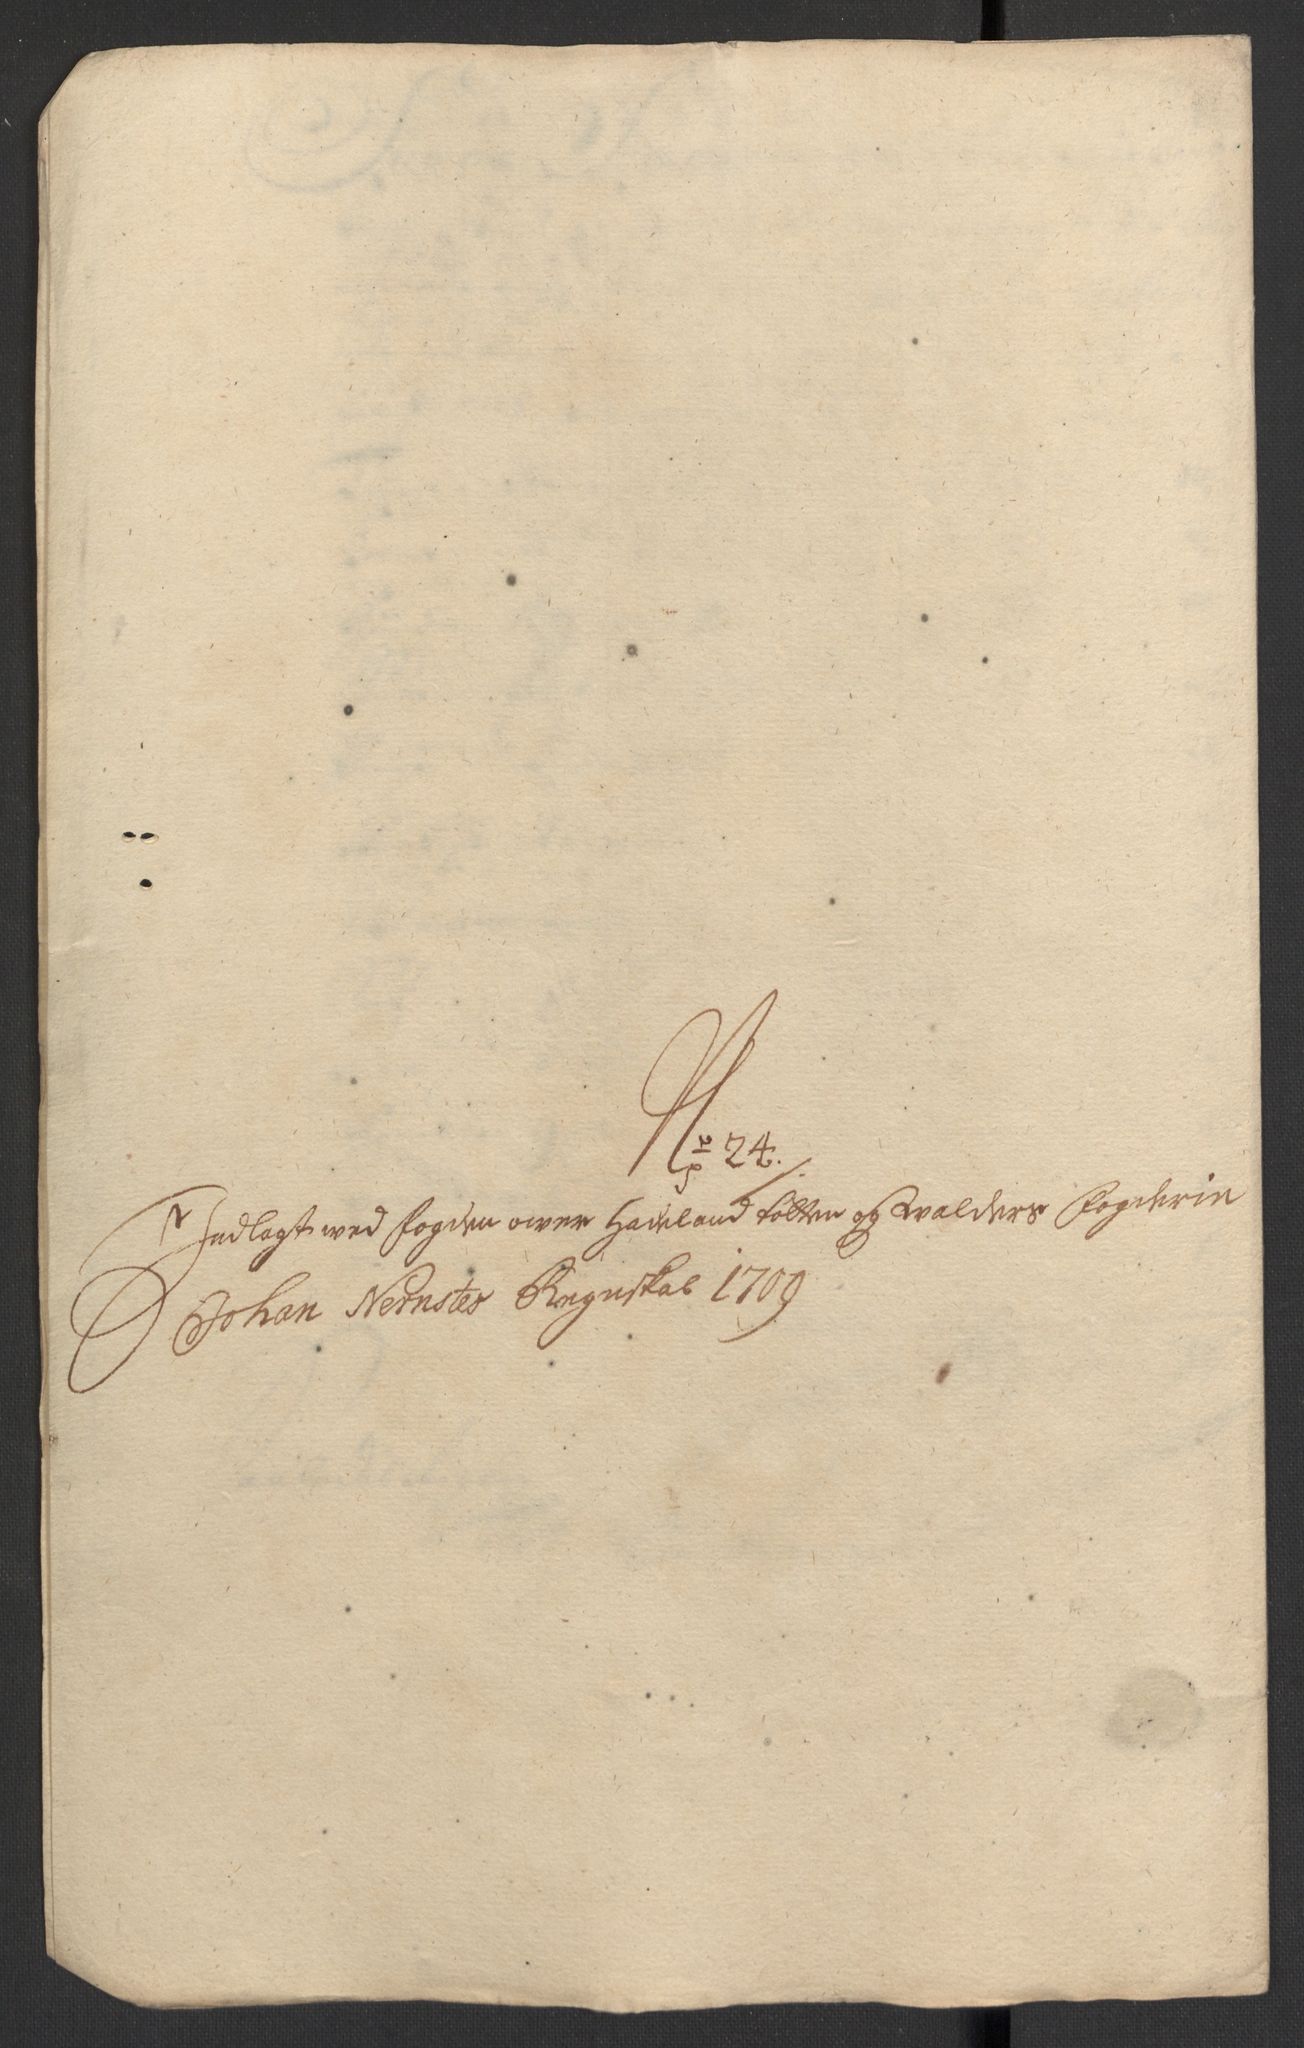 No 24.
Indlagt wed fogden ower Hadeland Totten og Walders Fogderie
Johan Nernstes Regnskab 1709